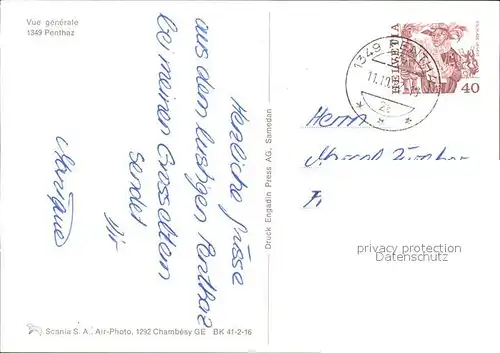 Vue générale
1349 Penthaz
Herzliche Grüsse
aus dem lustigen Penthaz
bei meinen Grosseltern
sendet
Dir
Martine
Scania S. A., Air-Photo, 1292 Chambésy GE BK 41-2-16
Druck Engadin Press AG, Samedan
HELVETIA
40
1349 PENTHAZ
Herrn
privacy protection
Datenschutz